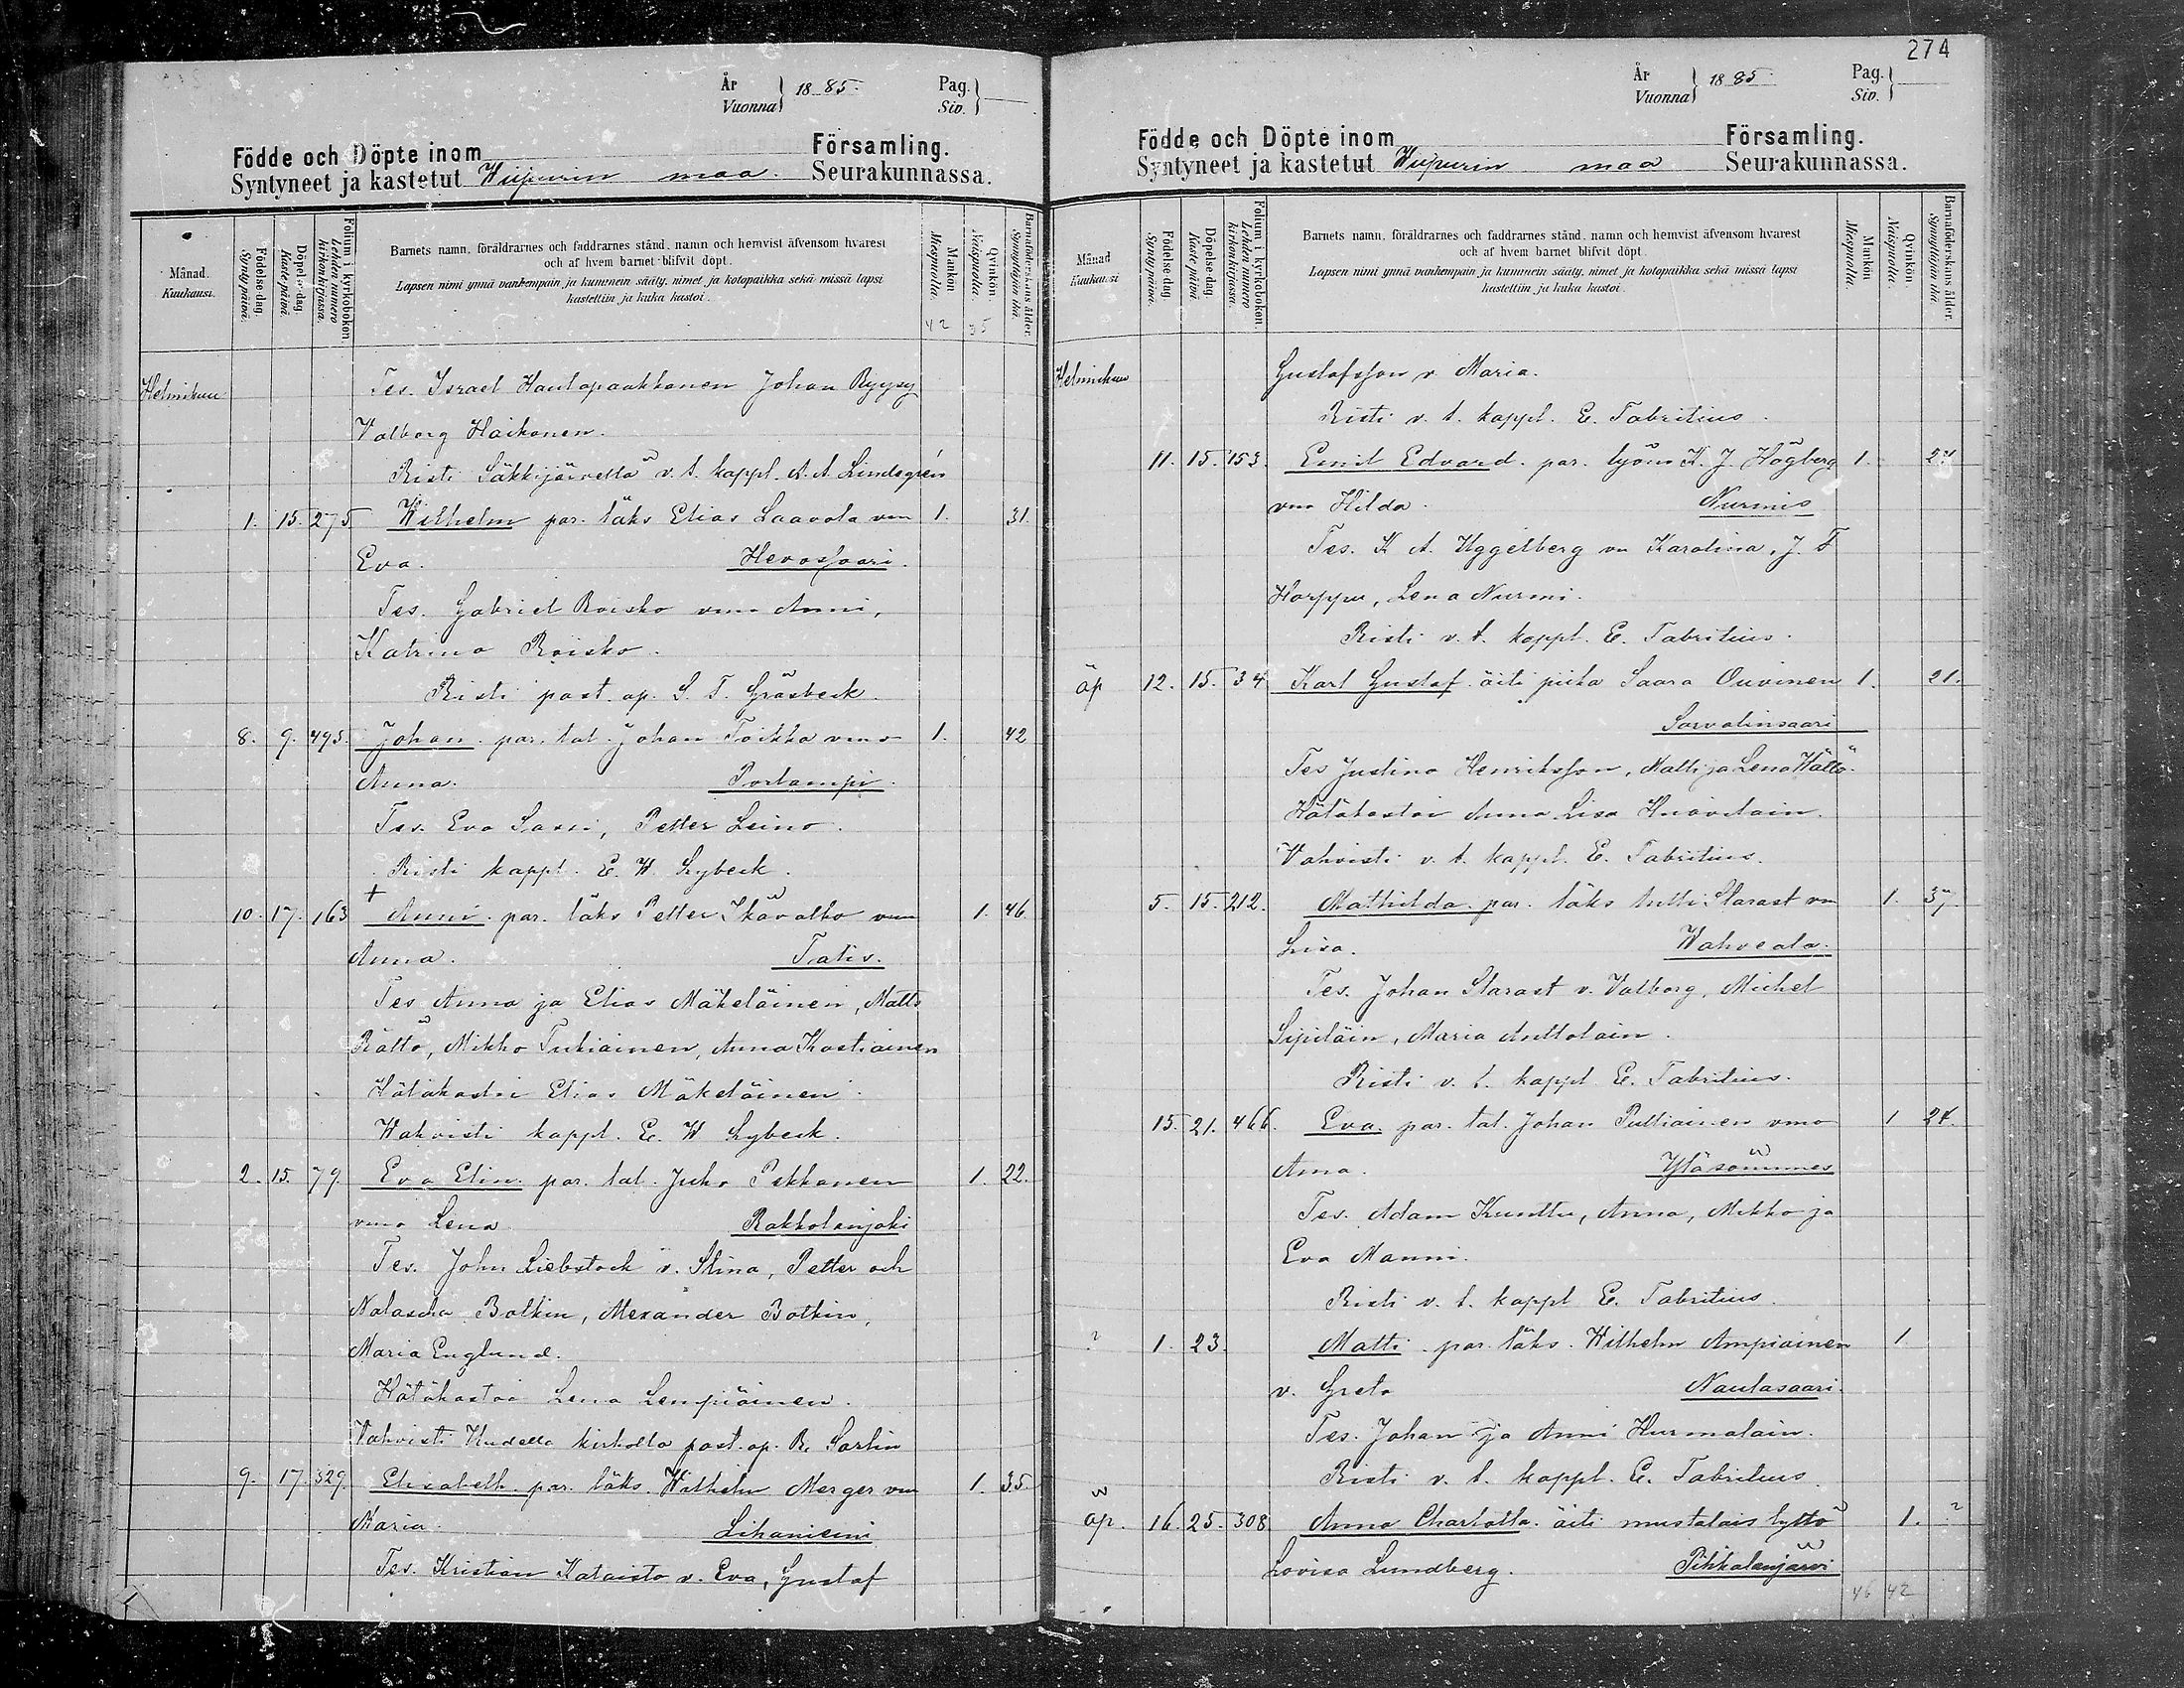 År
Vuonna
1885.
Pag.
Siv.
Födde och Döpte inom Församling.
Syntyneet ja kastetut Wiipurin maa. Seurakunnassa.
Månad.
Kuukausi.
Födelse dag.
Synty päivä.
Döpelse dag.
Kaste päivä.
Folium i kyrkoboken
Lehden numero kirkonkirjassa.
Barnets namn, föräldrarnes och faddrarnes stånd, namn och hemvist äfvensom hvarest
och af hvem barnet blifvit döpt.
Lapsen nimi ynnä vanhempain ja kummein sääty, nimet ja kotopaikka sekä missä lapsi
kastettiin ja kuka kastoi.
Mankön
Miespuolia.
Qvinkön.
Naispuolia.
Barnaföderskans ålder.
Synnyttäjän ikä.
42 35
Helmikuu Tes. Israel Hautapaakkanen Johan Ryypy
Valborg Haikonen.
Risti Säkkijärvellä v. t. kappl. A. A. Lindegrén
1. 15. 275 Wilhelm par. läks Elias Laavola vmo 1. 31.
Eva. Hevossaari.
Tes. Gabriel Roisko vmo Anni,
Katrina Roisko.
Risti past. ap. S. T. Gråsbeck.
8. 9. 495. Johan. par. tal. Johan Toikka vmo 1. 42
Anna. Portampi.
Tes. Eva Saxi, Petter Leino.
Risti kappl. E. W. Lybeck.
+
10. 17. 163 Anni. par. läks Petter Ikävalko vmo 1. 46
Anna. Talis.
Tes Anna ja Elias Mäkeläinen, Matts
Rättö, Mikko Tukiainen, Anna Kastiainen
Hätäkastoi Elias Mäkeläinen.
Wahvisti kappl. E. W Lybeck.
2. 15. 79. Eva Elin. par. tal. Juho Pekkanen 1. 22.
vmo Lena Rakkolanjoki
Tes. John Liebstock v. Stina, Petter och
Natascha Botkin, Alexander Botkin,
Maria Englund.
Hätäkastoi Lena Lempiäinen.
Vahvisti Uudella kirkolla past. ap. R. Sarlin
9. 17. 329. Elisabeth. par. läks. Wilhelm Merger vmo 1. 35.
Maria. Lihaniemi
Tes. Kristian Kataisto v. Eva, Gustaf
274
År
Vuonna
1885.
Pag.
Siv.
Födde och Döpte inom Församling.
Syntyneet ja kastetut Wiipurin maa Seurakunnassa.
Månad
Kuukausi
Födelse dag.
Synty päivä.
Döpelse dag.
Kaste päivä.
Folium i kyrkoboken.
Lehden numero kirkonkirjassa.
Barnets namn, föräldrarnes och faddrarnes stånd, namn och hemvist äfvensom hvarest
och af hvem barnet blifvit döpt.
Lapsen nimi ynnä vanhempain ja kummein sääty, nimet ja kotopaikka sekä missä lapsi
kastettiin ja kuka kastoi.
Mankön
Miespuolia.
Qvinkön
Naispuolia.
Barnaföderskans ålder.
Synnyttäjän ikä
Helmikuu Gustafsson v. Maria.
Risti v. t. kappl. E. Fabritius.
11. 15. 153. Emil Edvard. par. työm K. J. Högberg 1. 24
vmo Hilda. Nurmis
Tes. K A. Uggelberg vn Karolina, J. F
Harppu, Lena Nurmi.
Risti v. t. kappl. E. Fabritius.
äp 12. 15. 34 Karl Gustaf. äiti piika Saara Ouvinen 1. 21.
Sorvalinsaari
Tes Justina Henriksson, Matti ja Lena Hättö.
Hätäkastoi Anna Lisa
Vahvisti v. t. kappl. E. Fabritius.
5. 15. 212. Mathilda. par. läks Antti Starast vn 1. 37.
Lisa. Wahveala.
Tes. Johan Starast v. Valborg, Michel
Sipiläin, Maria Anttolain.
Risti v. t. kappl E. Fabritius.
15. 21. 466. Eva. par. tal. Johan Pulliainen vmo 1 24.
Anna. Yläsommes
Tes. Adam Kunttu, Anna, Mikko ja
Eva Manni.
Risti v. t. kappl E. Fabritius.
? 1. 23. Matti. par. läks. Wilhelm Ampiainen 1
v. Greta Naulasaari.
Tes. Johan ja Anni Hurmalain.
Risti v. t. kappl. E. Fabritius.
äp. 16. 25. 308 Anna Charlotta. äiti mustalais tyttö 1. ?
Lovisa Lundberg. Pihkalanjärvi
46 42